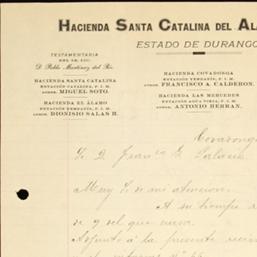 HACIENDA SANTA CATALINA DEL ALA
ESTADO DE DURANGO
TESTAMENTARIA
DEL SR. LIC.
D. Pablo Martínez del Río.
HACIENDA SANTA CATALINA
ESTACIÓN CATALINA, F. I. M.
ADMOR. MIGUEL SOTO.
HACIENDA EL ÁLAMO
ESTACIÓN YERBANÍS, F. I. M.
ADMOR. DIONISIO SALAS H.
HACIENDA COVADONGA
ESTACIÓN YERBANÍS, F. I. M.
ADMOR. FRANCISCO A. CALDERON.
HACIENDA LAS MERCEDES
ESTACIÓN
ADMOR. ANTONIO HERRAN.
Covadonga
S. D. Franco
Muy S. de mi atencion.
A su tiempo
de 9 del que cursa.
Adjunto á la presente